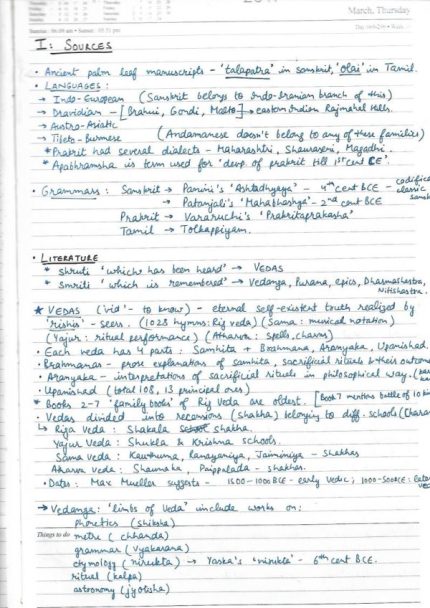 March, Thursday
I: SOURCES
• Ancient palm leaf manuscripts - 'talapatra' in sanskrit, 'Olai' in Tamil.
• LANGUAGES :
→ Indo-European (Sanskrit belongs to Indo-Iranian branch of this)
→ Dravidian - [Brahui, Gondi, Malto] → eastern Indian Rajmahal Hills.
→ Austro-Asiatic
→ Tibeto-Burmese (Andamanese doesn't belong to any of these families)
* Prakrit had several dialects - Maharashtri, Shauraseni, Magadhi
* Apabhramsha is term used for 'devp. of prakrit till 1st cent CE'.
• Grammars : Sanskrit → Panini's 'Ashtadhyaya' - 4th cent BCE - codified
→ Patanjali's 'Mahabhashya' - 2nd cent BCE classic
Prakrit → Vararuchi's 'Prakritaprakasha'
Tamil → Tolkappiyam.
• LITERATURE
* Shruti 'which has been heard' → VEDAS
* Smriti 'which is remembered' → Vedanga, Purana, epics, Dharmashastra,
Nitishastra
★ VEDAS ('vid' - to know) - eternal self-existent truth realized by
'rishis' - seers. (1028 hymns: Rig veda) (Sama : musical notation)
(Yajur : ritual performance) (Atharva : spells, charms)
• Each veda has 4 parts : Samhita - Brahmana, Aranyaka, Upanishad.
• Brahmanas - prose explanations of samhita, sacrificial rituals & their outcome
• Aranyaka - interpretations of sacrificial rituals in philosophical way.
• Upanishad (total 108, 13 principal ones)
* Books 2-7 'family books' of Rig Veda are oldest. [Book 7 mentions battle of 10
• Vedas divided into recensions (shakha) belonging to diff. schools
↳ Riga Veda : Shakala shakha.
Yajur Veda : Shukla & Krishna schools.
Sama veda : Kauthuma, Ranayaniya, Jaiminiya - shakhas
Atharva Veda : Shaunaka, Paippalada - shakhas.
• Dates : Max Mueller suggests - 1500-1000BCE - early vedic ; 1000-500BCE : later
→ Vedanga : 'limbs of Veda' include works on :
phonetics (shiksha)
Things to do metre (chhanda)
grammar (vyakarana)
etymology (nirukta) → Yaska's 'nirukta' - 6th cent BCE.
ritual (kalpa)
astronomy (jyotisha)